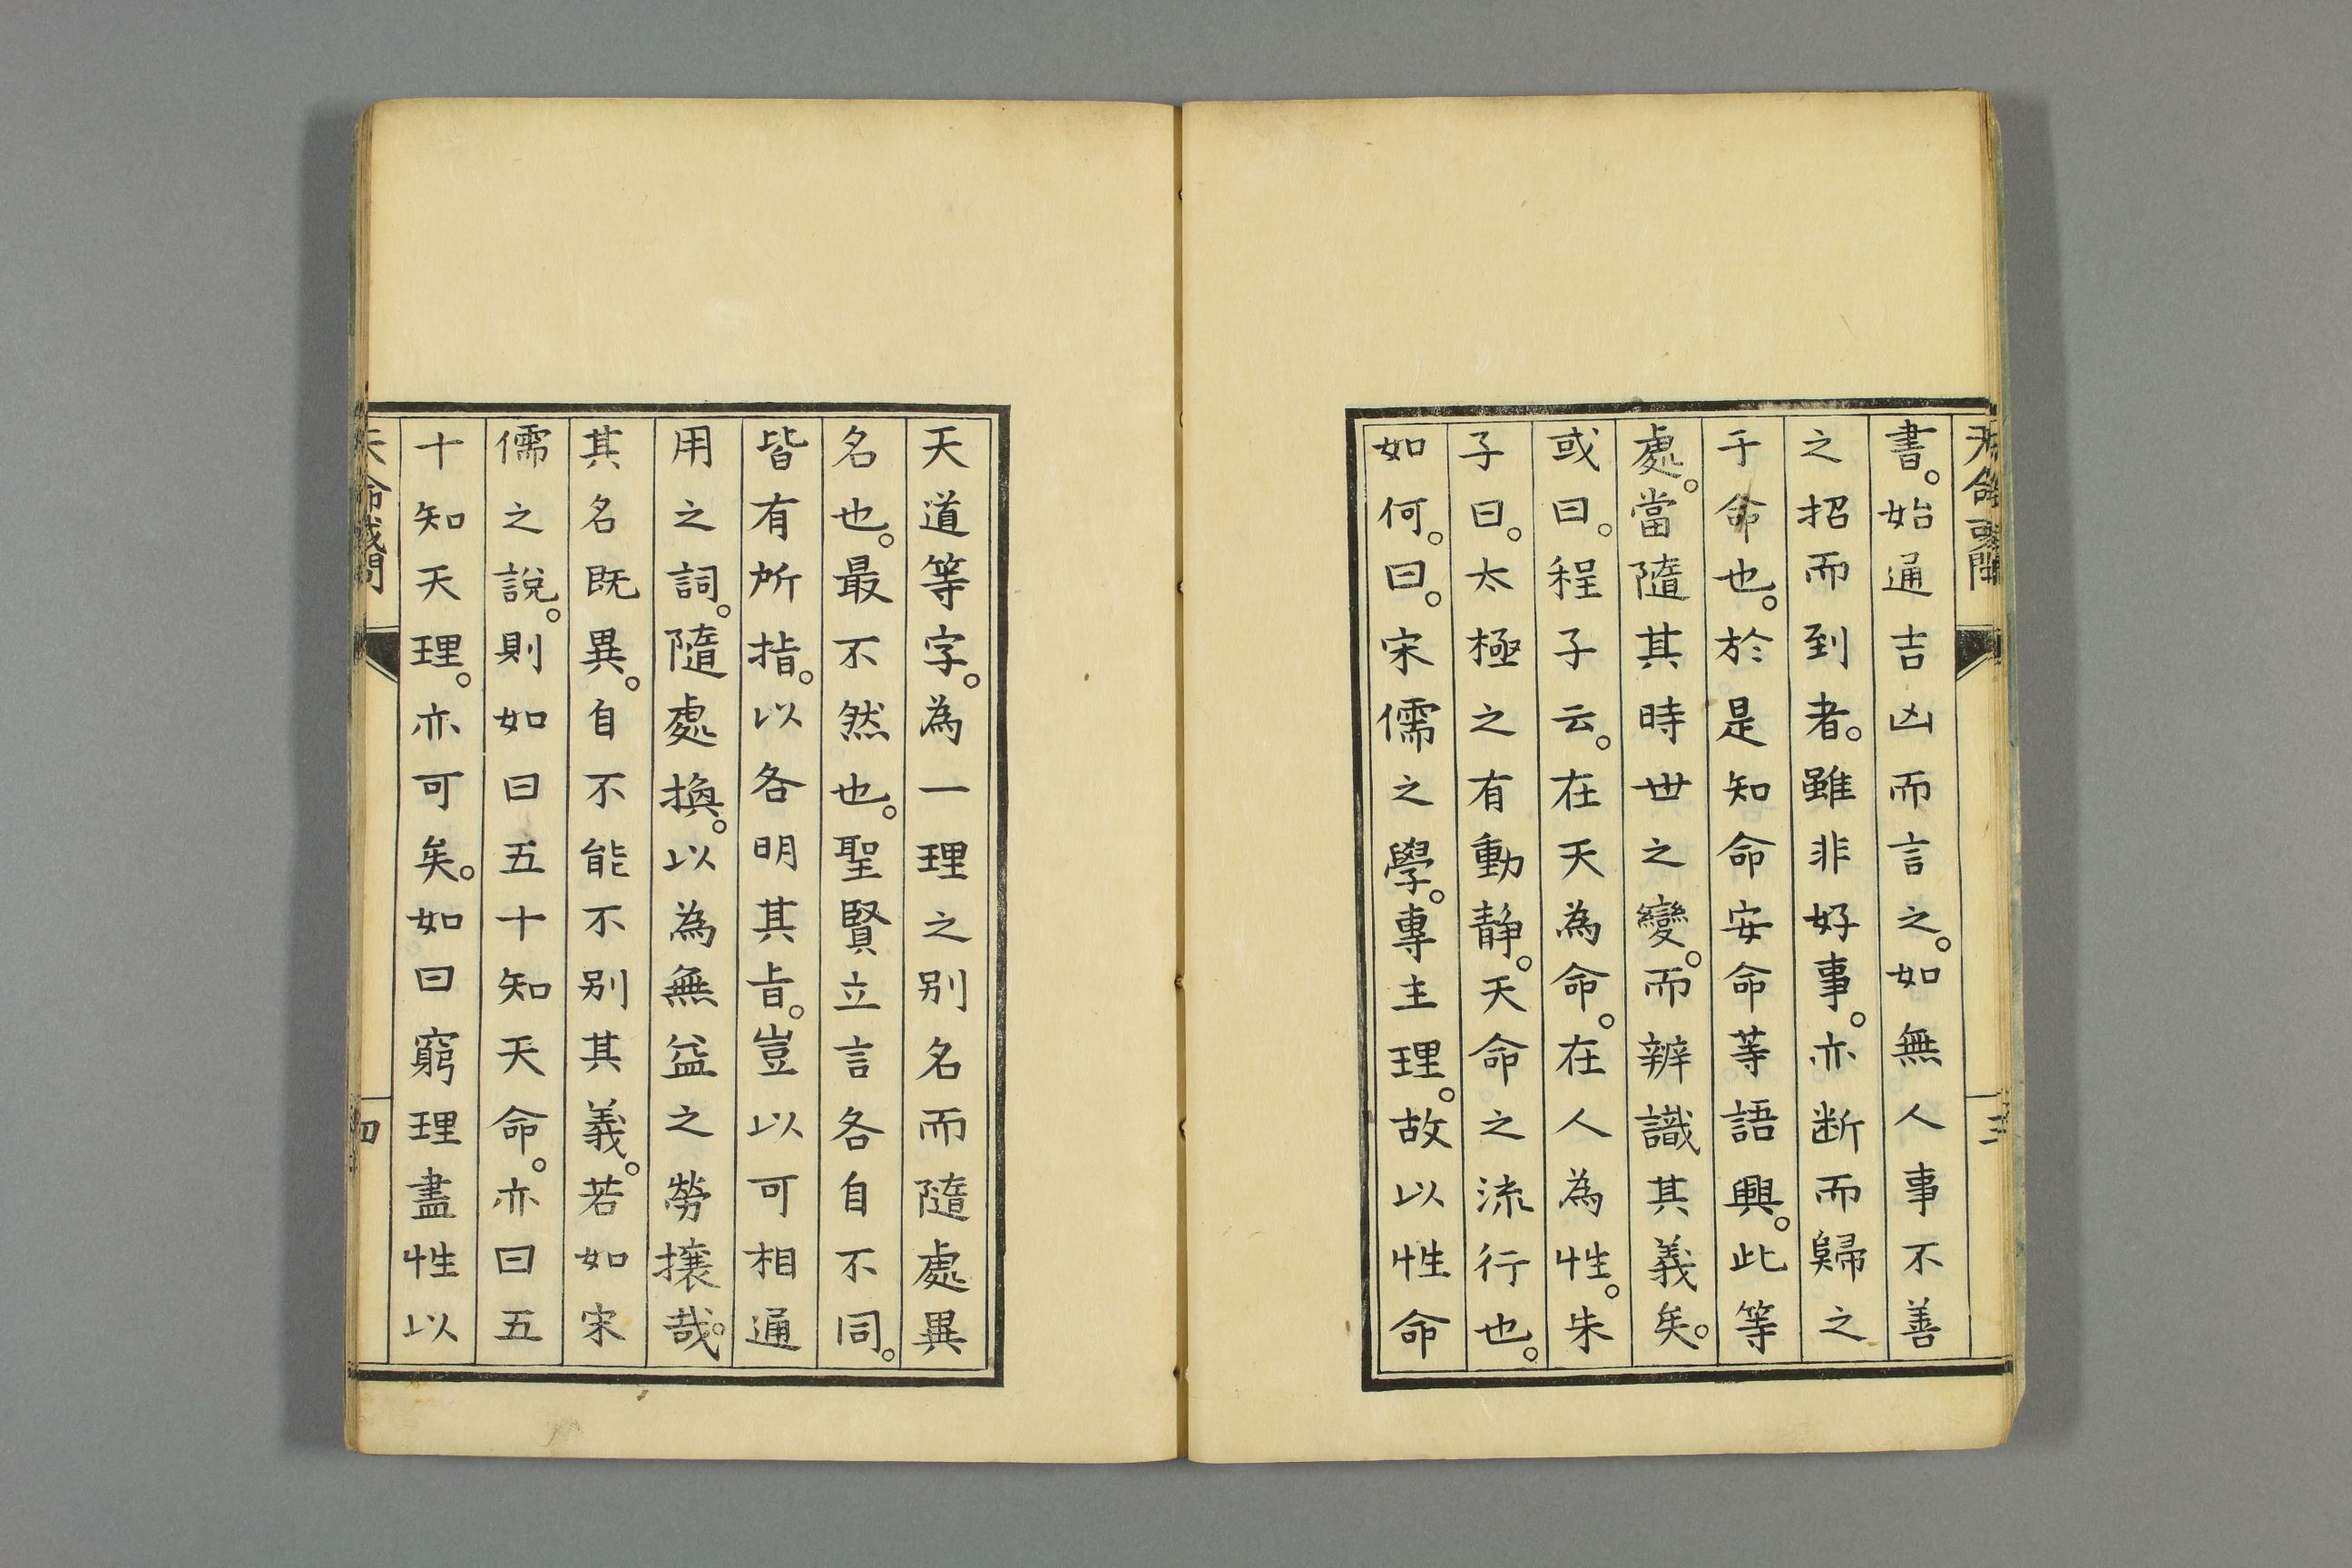 天命或問
三
書。始通吉凶而言之。如無人事不善
之招而到者。雖非好事。亦断而歸之
于命也。於是知命安命等語興。此等
處。當隨其時世之變。而辨識其義矣。
或曰。程子云。在天為命。在人為性。朱
子曰。太極之有動静。天命之流行也。
如何。曰。宋儒之學。專主理。故以性命
天道等字。為一理之别名而隨處異
名也。最不然也。聖賢立言各自不同。
皆有所指。以各明其旨。豈以可相通
用之詞。隨處換。以為無益之勞攘哉。
其名既異。自不能不别其義。若如宋
儒之說。則如曰五十知天命。亦曰五
十知天理。亦可矣。如曰窮理盡性以
天命或問
四